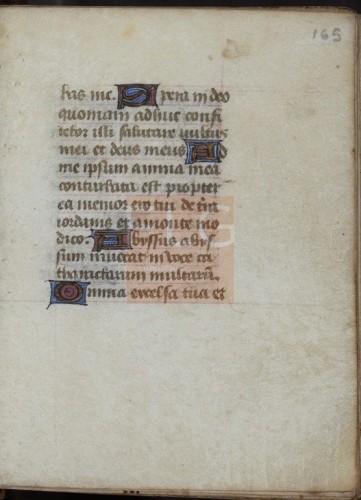 165
bas me. Spera in deo
quoniam adhuc confi
tebor illi salutare vultus
mei et deus meus Ad
me ipsum anima mea
conturbata est propter
ea memor ero tui de tr̄a
iordanis et a monte mo
dico. Abyssus abys
sum invocat in voce ca
tharactarum tuarum.
Omnia excelsa tua et